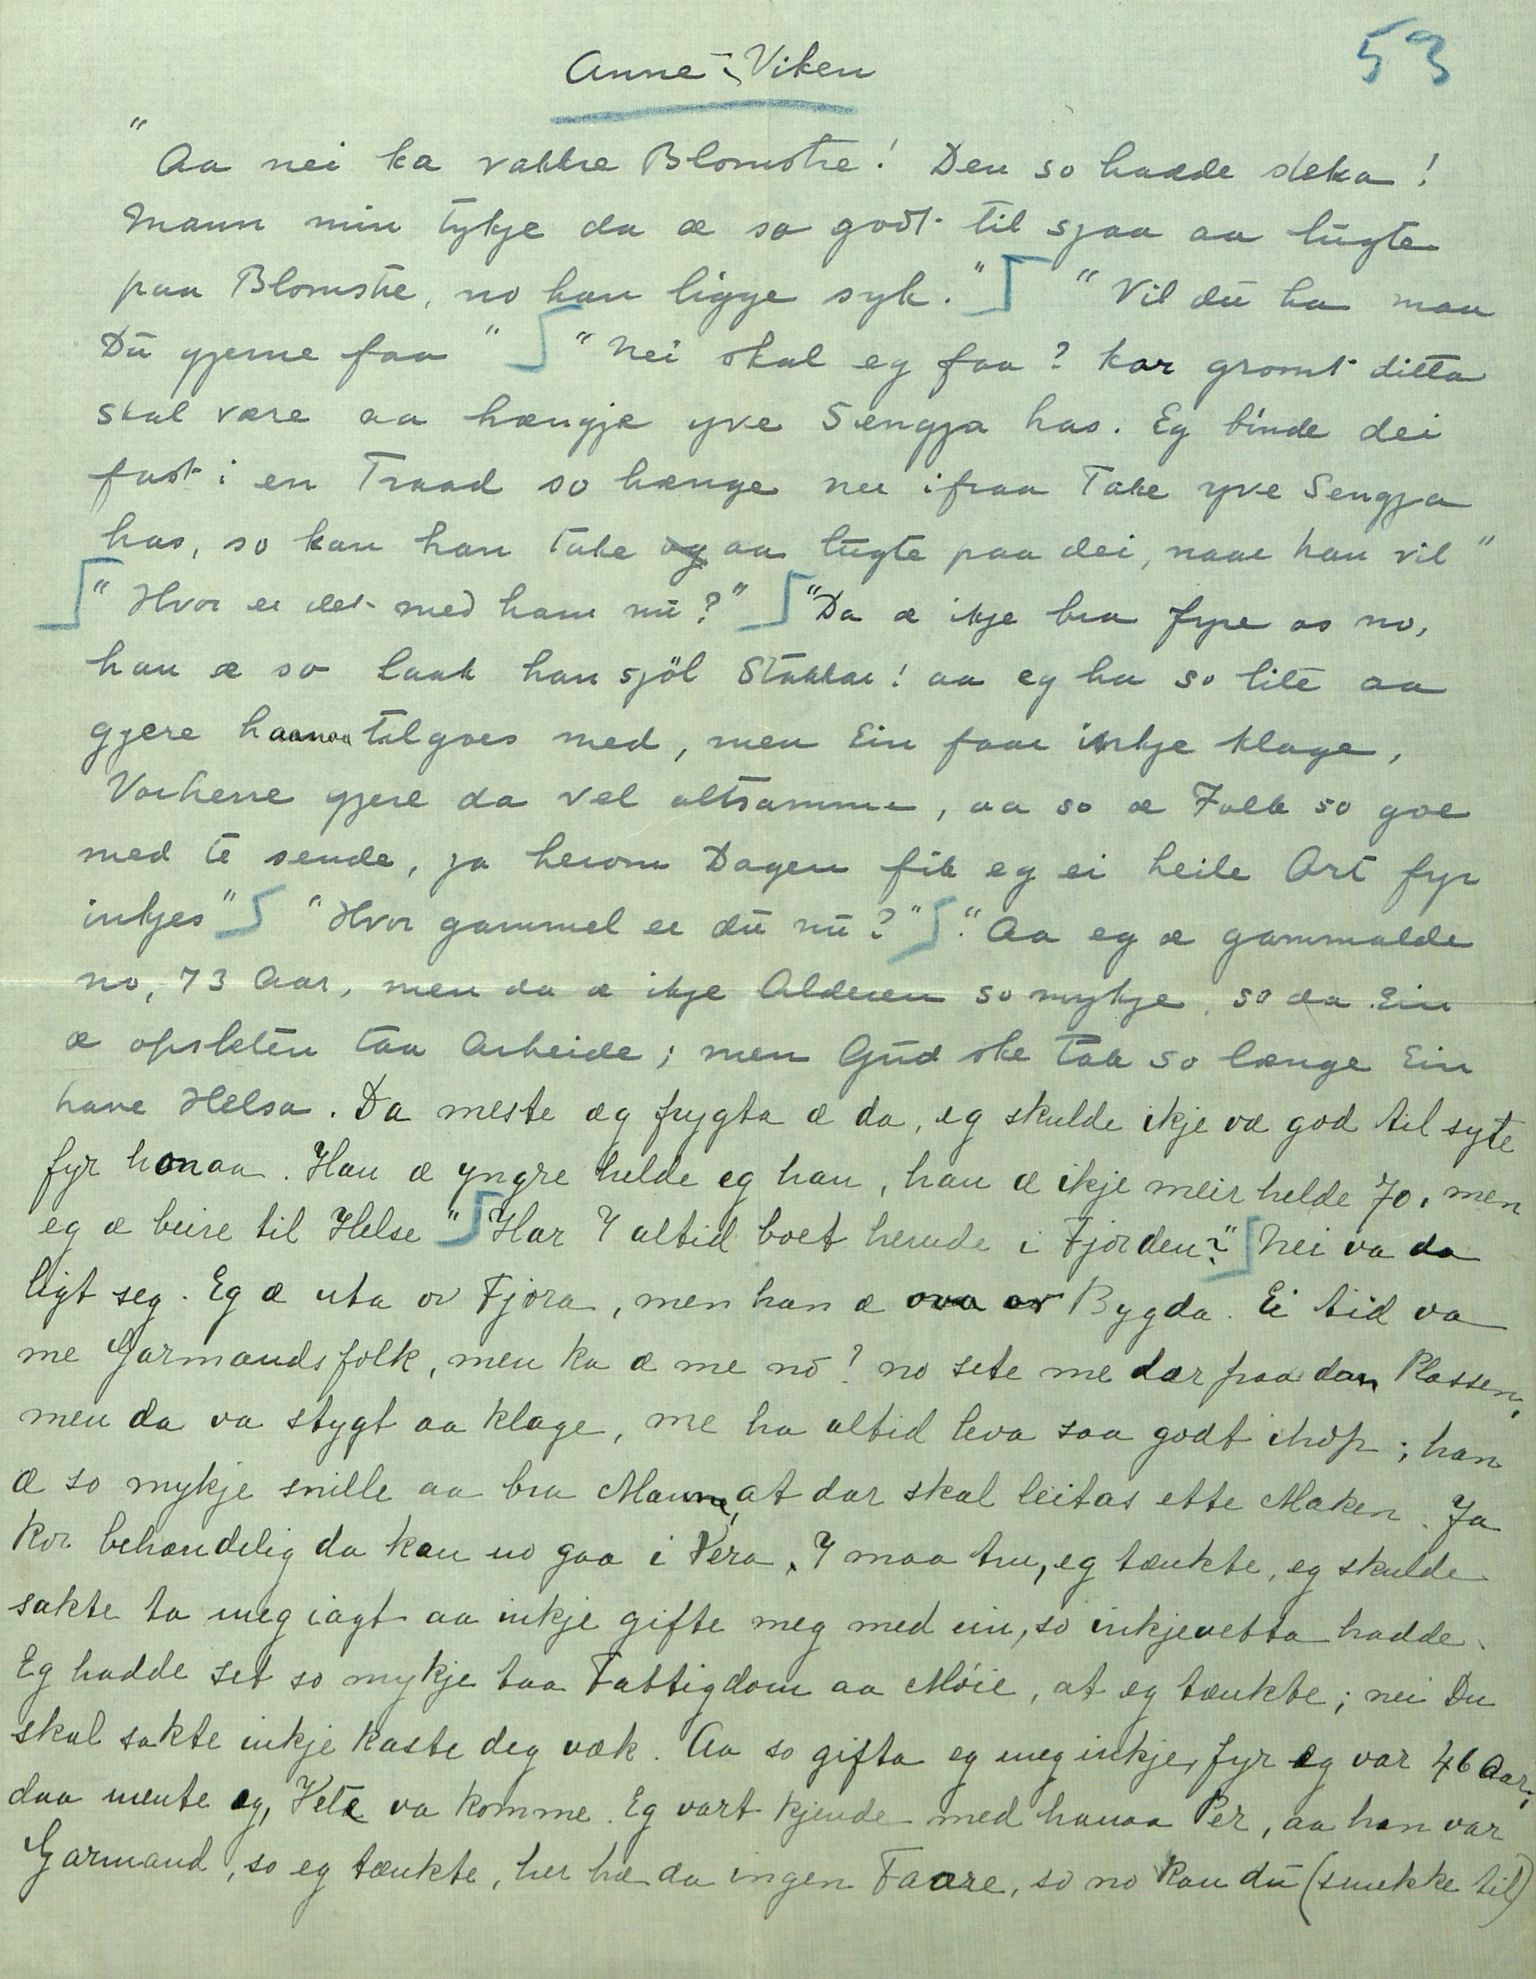 Anne i Viken
53
"Aa nei ka vakkre Blomstre! Den so hadde sleka!
Mann min tykje da æ so godt til sjaa aa lugte
paa Blomstre, no han ligge syk." "Vil du ha maa
Du gjerne faa" "Nei skal eg faa? kor gromt ditta
skal være aa hængje yve Sengja has. Eg binde dei
fast i en Traad so hænge ne ifraa Take yve Sengja
has, so kan han take og aa lugte paa dei, naar han vil"
"Hvor er det med ham nu?" "Da æ ikje bra fyre os no,
han æ so laak han sjöl Stakkar! aa eg ha so lite aa
gjere haanaa tilgoes med, men Ein faar inkje klage,
Vorherre gjere da vel altsamme, aa so æ Folk so goe
med te sende, ja herom Dagen fik eg ei heile Ort fyr
inkjes" "Hvor gammel er du nu?" "Aa eg æ gammalde
no, 73 Aar, men da æ ikje Alderen so mykje, so da Ein
æ opsleten taa Arbeide; men Gud ske Tak so længe Ein
have Helsa. Da meste æg frygta æ da, eg skulde ikje væ god til syte
fyr honaa. Han æ yngre helde eg han, han æ ikje meir helde 70, men
eg æ beire til Helse" Har I altid boet herude i Fjorden?" Nei va da
ligt seg. Eg æ uta ov Fjora, men han æ ova or Bygda. Ei tid va
me Garmandsfolk, men ka æ me no? no sete me dær paa dan Plassen,
men da va stygt aa klage, me ha altid leva saa godt ihop; han
æ so mykje snille aa bra Manne, at dar skal leitas ette Maken. Ja
kor behændelig da kan no gaa i Vera, I maa tru, eg tænkte, eg skulde
sakte ta meg iagt aa inkje gifte meg med ein, so inkjevetta hadde.
Eg hadde set so mykje taa Fattigdom aa Möie, at eg tænkte; nei Du
skal sakte inkje kaste deg væk. Aa so gifta eg meg inkje, fyr eg var 46 Aar,
daa mente eg, Vete va komme. Eg vart kjende med hanaa Per, aa han var
Garmand, so eg tænkte, her hæ da ingen Faare, so no kan du (smekke til)